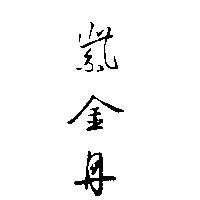 紫金丹